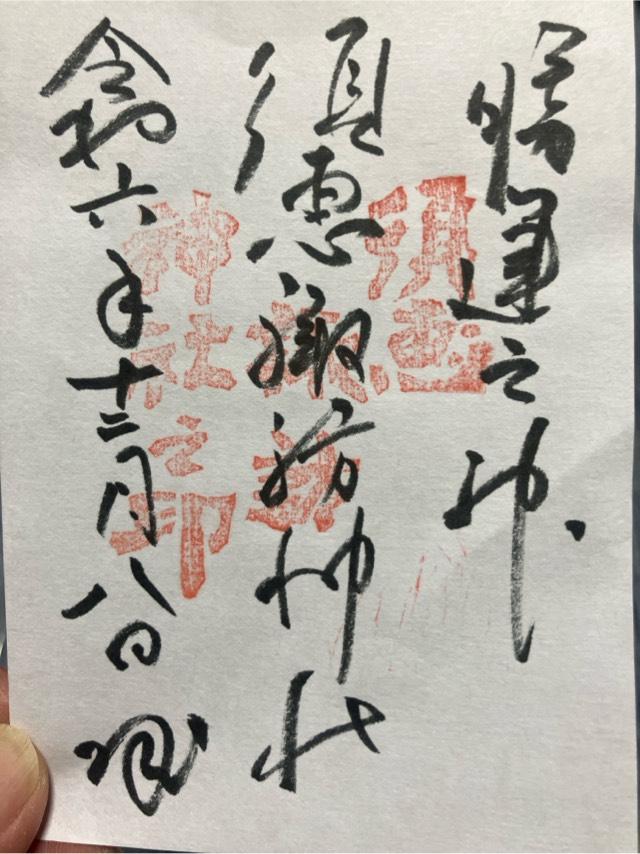 勝運之神
須恵諏訪神社
令和六年十二月八日
須恵
諏訪
神社之印